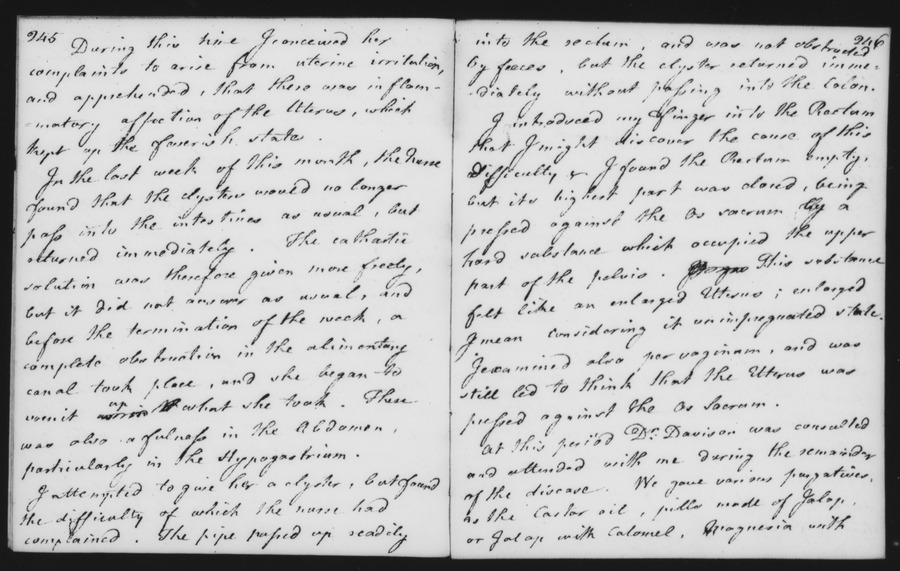 245
During this time I conceived her
complaints to arise from uterine irritation,
and apprehended, that there was inflam-
-matory affection of the Uterus, which
kept up the feverish state.
In the last week of this month, the nurse
found that the clysters would no longer
pass into the intestines as usual, but
returned immediately. The cathartic
solution was therefore given more freely,
but it did not answer as usual, and
before the termination of the week, a
complete obstruction in the alimentary
canal took place, and she began to
vomit up what she took. There
was also a fulness in the Abdomen,
particularly in the Hypogastrium.
I attempted to give her a clyster, but found
the difficulty of which the nurse had
complained. The pipe passed up readily
246
into the rectum, and was not obstructed
by fæces, but the clyster returned imme-
-diately without passing into the Colon.
I introduced my finger into the Rectum
that I might discover the cause of this
difficulty & I found the Rectum empty,
but its highest part was closed, being
pressed against the Os sacrum by a
hard substance which occupied the upper
part of the pelvis. This substance
felt like an enlarged Uterus; enlarged
I mean considering its unimpregnated state.
I examined also per vaginam, and was
still led to think that the Uterus was
pressed against the Os Sacrum.
At this period Dr. Davison was consulted
and attended with me during the remainder
of the disease. We gave various purgatives,
as the Castor oil, pills made of Jalap,
or Jalap with Calomel, Magnesia with